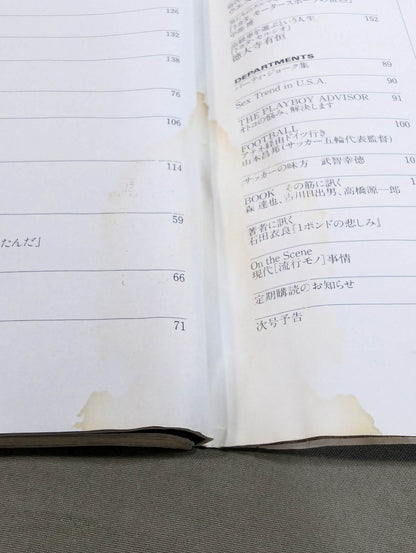 126
132
138
76
106
114
59
たんだ」
66
71
152
徳大寺有恒
DEPARTMENTS
パーティジョーク集 89
Sex Trend in U.S.A. 90
THE PLAYBOY ADVISOR 91
オトコの悩み、解決します
FOOTBALL 100
アテネ経由ドイツ行き
山本昌邦(サッカー五輪代表監督)
サッカーの味方 武智幸徳 10
BOOK その筋に訊く 1
森 達也、古川日出男、高橋源一郎
著者に訊く
石田衣良『1ポンドの悲しみ』
On the Scene
現代[流行モノ]事情
定期購読のお知らせ
次号予告